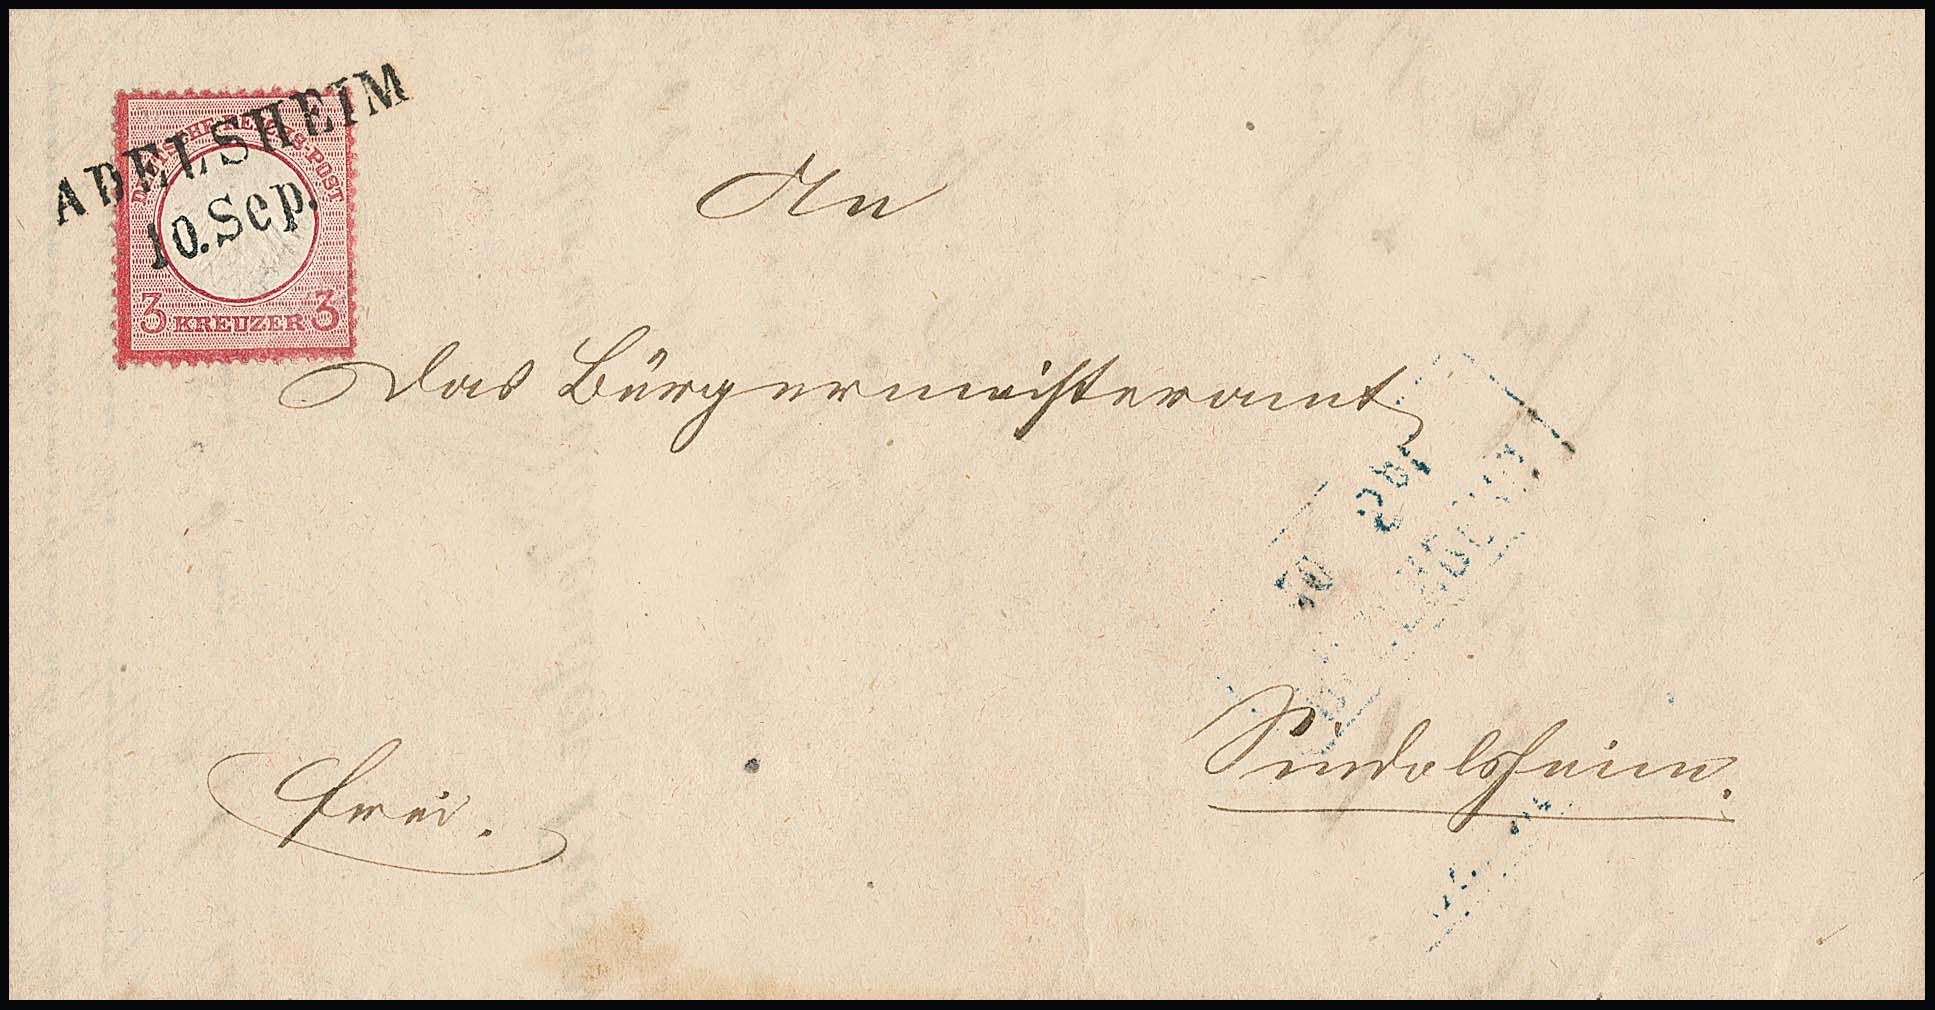 ADELSHEIM
10. Sep.
DEUTSCHE REICHS-POST
3 KREUZER 3
An
das Bürgermeisteramt
Sindolsheim.
frei.